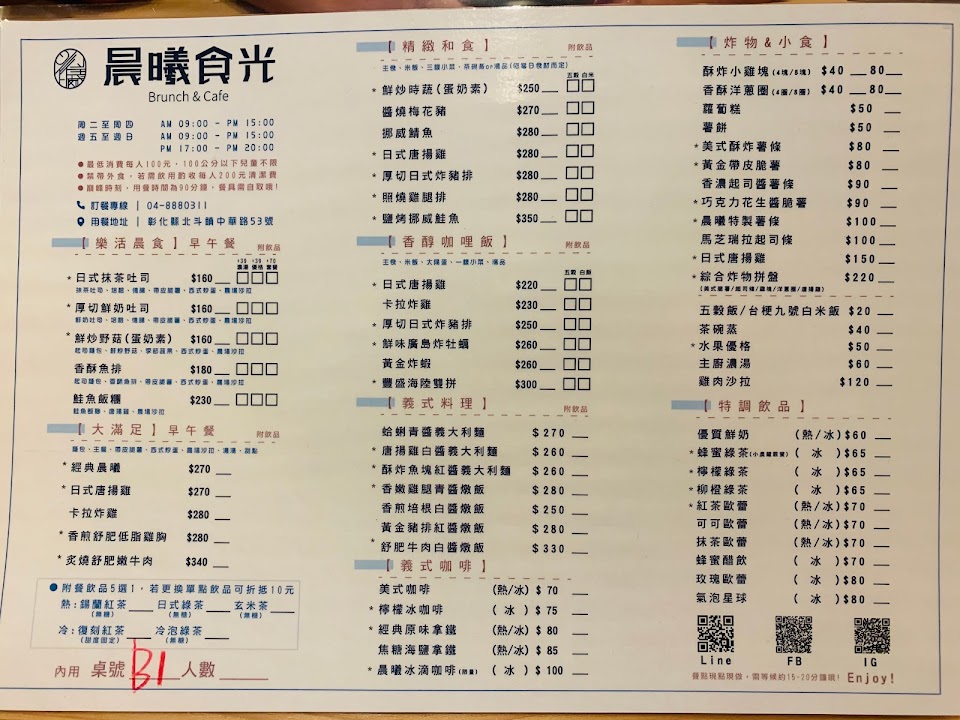 晨曦食光
Brunch & Cafe
周二至周四 AM 09:00 - PM 15:00
週五至週日 AM 09:00 - PM 15:00
PM 17:00 - PM 20:00
●最低消費每人100元，100公分以下兒童不限
●禁帶外食，若需飲用酌收每人200元清潔費
●巔峰時刻，用餐時間為90分鐘，餐具需自取哦!
訂餐專線 | 04-8880311
用餐地址 | 彰化縣北斗鎮中華路53號
【樂活晨食】早午餐 附飲品
+39 +39 +70
濃湯 優格 套餐
*日式抹茶吐司 $160 __ □□□
*厚切鮮奶吐司 $160 __ □□□
*鮮炒野菇(蛋奶素) $160 __ □□□
香酥魚排 $180 __ □□□
鮭魚飯糰 $230 __ □□□
鮭魚飯糰、唐揚雞、農場沙拉
【大滿足】早午餐 附飲品
麵包、主餐、帶皮脆薯、西式炒蛋、農場沙拉、濃湯、甜點
*經典晨曦 $270 __
*日式唐揚雞 $270 __
卡拉炸雞 $280 __
*香煎舒肥低脂雞胸 $280 __
*炙燒舒肥嫩牛肉 $340 __
●附餐飲品5選1，若更換單點飲品可折抵10元
熱:錫蘭紅茶____ 日式綠茶____ 玄米茶____
(無糖) (無糖) (無糖)
冷:復刻紅茶____ 冷泡綠茶____
(甜度固定) (無糖)
內用 桌號 B1 人數______
【精緻和食】 附飲品
五穀 白米
*鮮炒時蔬(蛋奶素) $250 __ □□
醬燒梅花豬 $270 __ □□
挪威鯖魚 $280 __ □□
*日式唐揚雞 $280 __ □□
*厚切日式炸豬排 $280 __ □□
*照燒雞腿排 $280 __ □□
*鹽烤挪威鮭魚 $350 __ □□
【香醇咖哩飯】 附飲品
五穀 白飯
*日式唐揚雞 $220 __ □□
卡拉炸雞 $230 __ □□
*厚切日式炸豬排 $250 __ □□
*鮮味廣島炸牡蠣 $260 __ □□
黃金炸蝦 $260 __ □□
*豐盛海陸雙拼 $300 __ □□
【義式料理】 附飲品
蛤蜊青醬義大利麵 $270 __
*唐揚雞白醬義大利麵 $260 __
*酥炸魚塊紅醬義大利麵 $260 __
*香嫩雞腿青醬燉飯 $280 __
香煎培根白醬燉飯 $250 __
黃金豬排紅醬燉飯 $280 __
*舒肥牛肉白醬燉飯 $330 __
【義式咖啡】
美式咖啡 (熱/冰) $ 70 __
*檸檬冰咖啡 ( 冰 ) $ 75 __
*經典原味拿鐵 (熱/冰) $ 80 __
焦糖海鹽拿鐵 (熱/冰) $ 85 __
*晨曦冰滴咖啡(限量) ( 冰 ) $ 100 __
【炸物&小食】
酥炸小雞塊(4塊/8塊) $40 __80__
香酥洋蔥圈(4圈/8圈) $40 __80__
蘿蔔糕 $50 __
薯餅 $50 __
*美式酥炸薯條 $80 __
*黃金帶皮脆薯 $80 __
香濃起司醬薯條 $90 __
*巧克力花生醬脆薯 $90 __
*晨曦特製薯條 $100 __
馬芝瑞拉起司條 $100 __
*日式唐揚雞 $150 __
*綜合炸物拼盤 $220 __
五穀飯/台梗九號白米飯 $20 __
茶碗蒸 $40 __
*水果優格 $50 __
主廚濃湯 $60 __
雞肉沙拉 $120 __
【特調飲品】
優質鮮奶 (熱/冰)$60 __
*蜂蜜綠茶 ( 冰 )$65 __
*檸檬綠茶 ( 冰 )$65 __
*柳橙綠茶 ( 冰 )$65 __
*紅茶歐蕾 (熱/冰)$70 __
可可歐蕾 (熱/冰)$70 __
抹茶歐蕾 (熱/冰)$70 __
蜂蜜醋飲 ( 冰 )$70 __
玫瑰歐蕾 ( 冰 )$80 __
氣泡星球 ( 冰 )$80 __
Line FB IG
餐點現點現做，需等候約15-20分鐘哦! Enjoy!